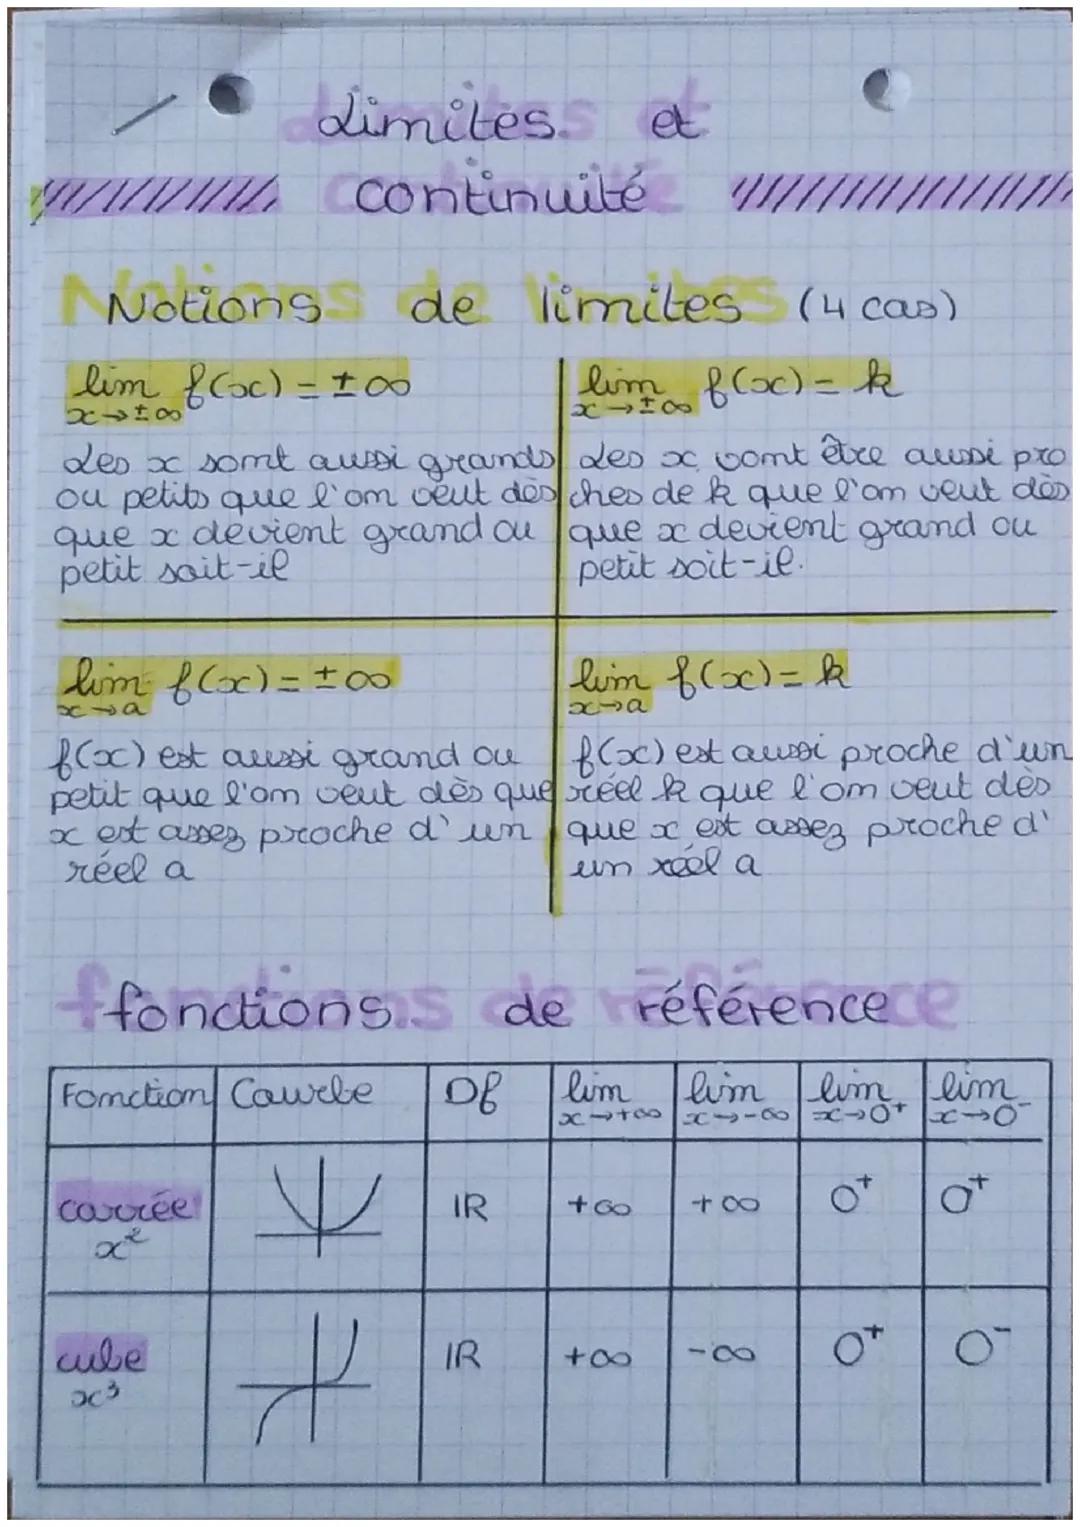 Limites et
continuité
Notions de limites (4 cas)
lim f(x) = ±∞
x→±∞
Les x sont aussi grands
ou petits que l'on veut dès
que x devient grand ou
petit soit-il
lim f(x) = k
x→±∞
Les x vont être aussi pro
ches de k que l'on veut dès
que x devient grand ou
petit soit-il.
lim f(x) = ±∞
x→a
f(x) est aussi grand ou
petit que l'on veut dès que
x est assez proche d'un
réel a
lim f(x) = k
x→a
f(x) est aussi proche d'un
réel k que l'on veut dès
que x est assez proche d'
un réel a
fonctions de référence
Fonction Courbe Df lim x→+∞ lim x→-∞ lim x→0⁺ lim x→0⁻
carrée IR +∞ +∞ 0⁺ 0⁺
x²
cube IR +∞ -∞ 0⁺ 0⁻
x³